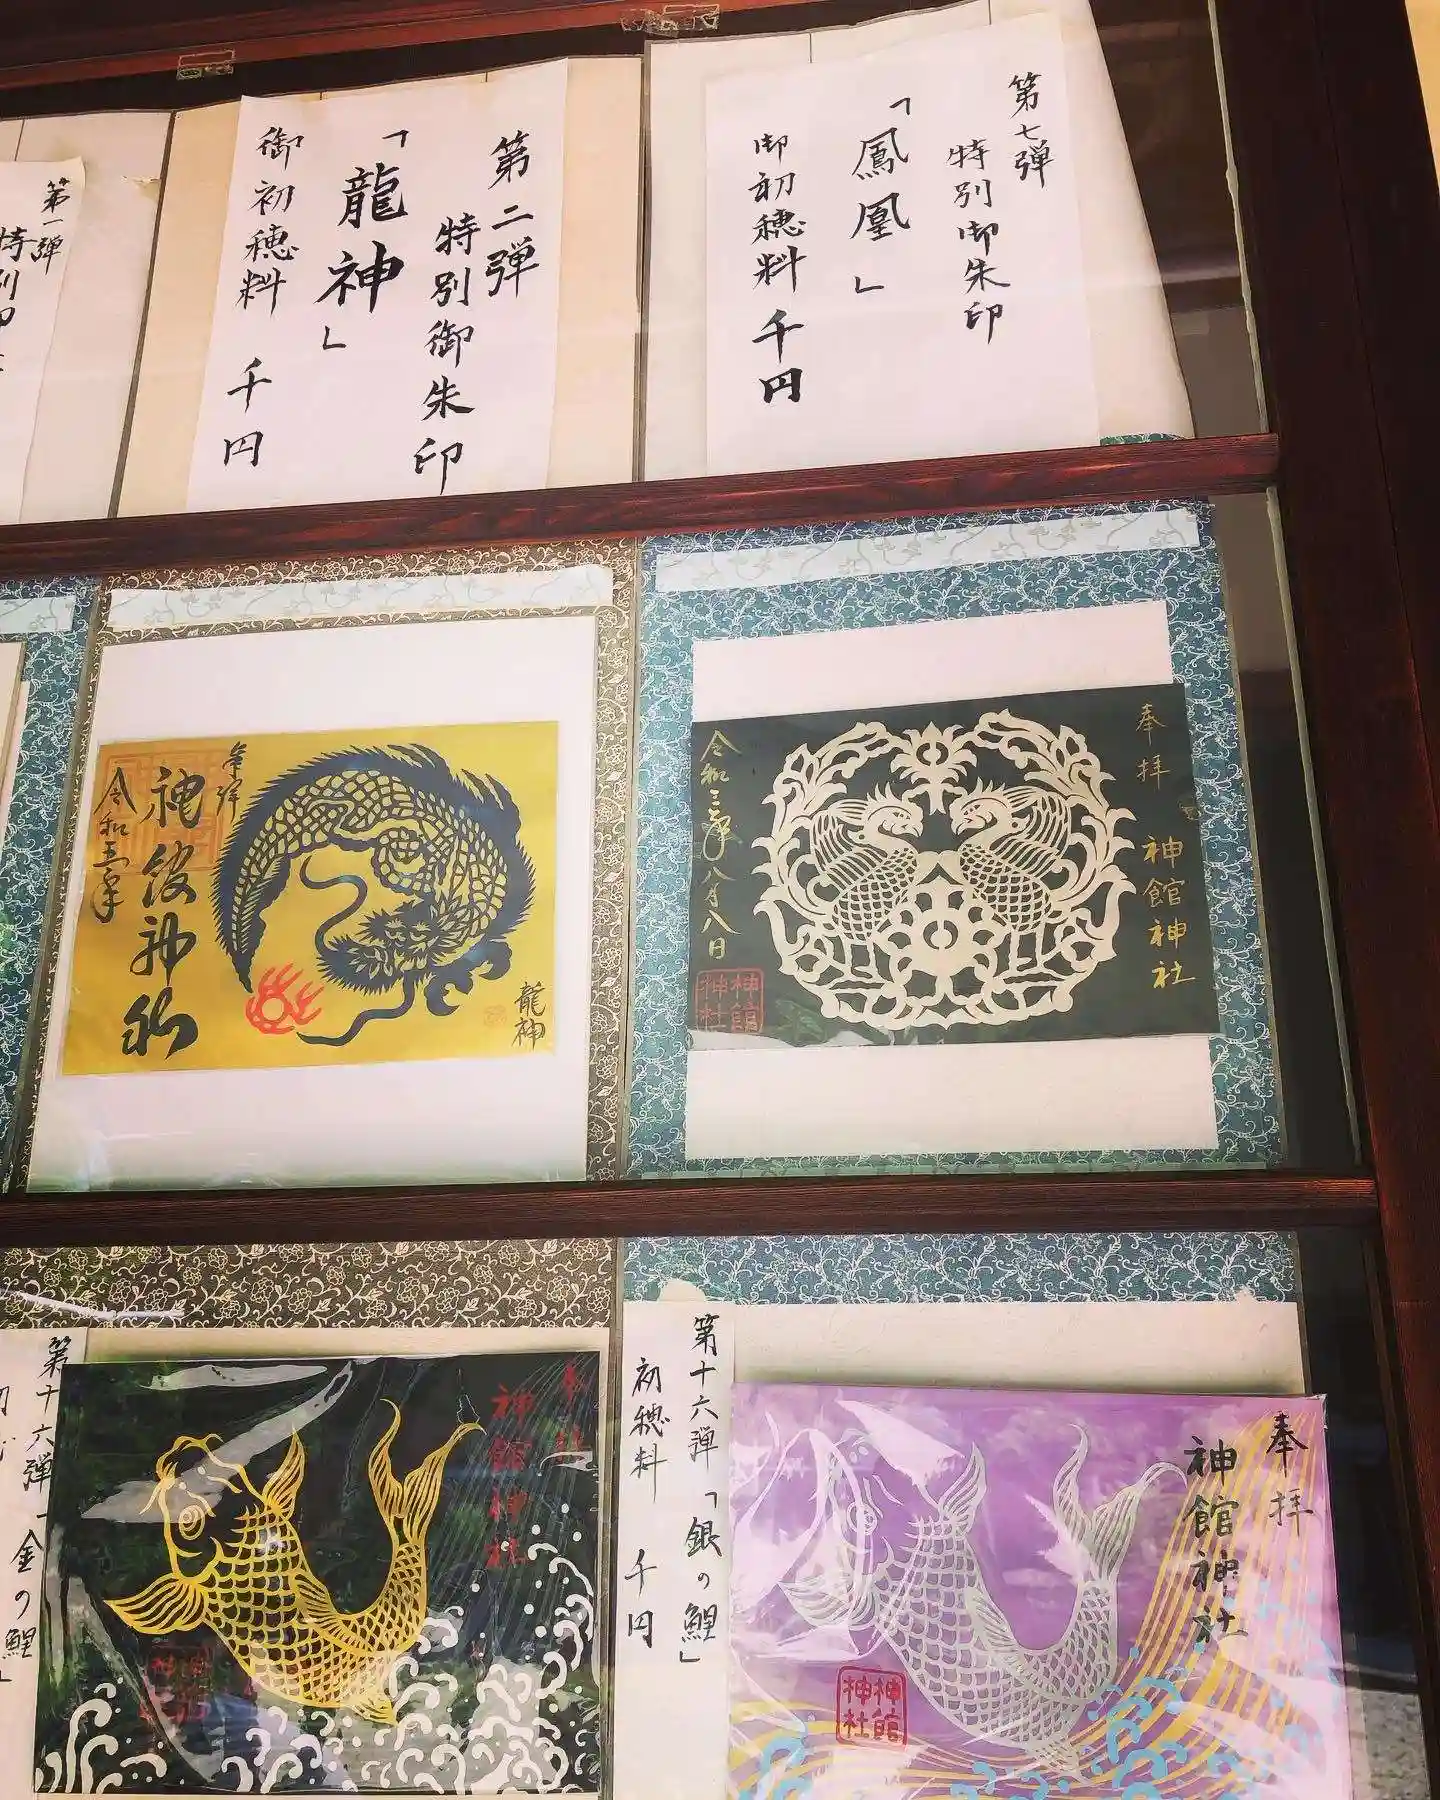 第七弾
特別御朱印
「鳳凰」
御初穂料 千円
第二弾
特別御朱印
「龍神」
御初穂料 千円
第一弾
奉拝
神館神社
令和三年八月八日
神館
神社
奉拝
神館神社
令和三年
龍神
第十六弾「銀の鯉」
初穂料 千円
奉拝
神館神社
神館
神社
神館神社
第十六弾「金の鯉」